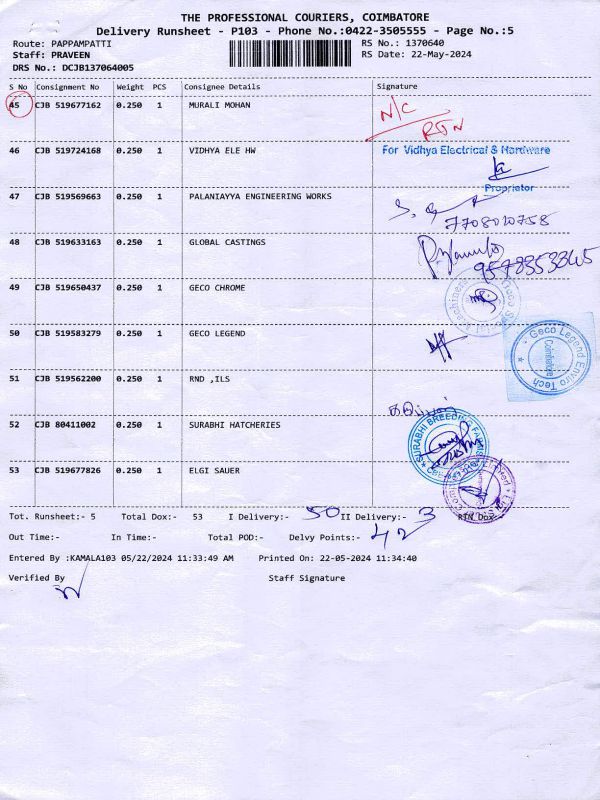 THE PROFESSIONAL COURIERS, COIMBATORE
Delivery Runsheet - P103 - Phone No.:0422-3505555 - Page No.:5
Route: PAPPAMPATTI RS No.: 1370640
Staff: PRAVEEN RS Date: 22-May-2024
DRS No.: DCJB137064005
S No Consignment No Weight PCS Consignee Details Signature
45 CJB 519677162 0.250 1 MURALI MOHAN N/C
RTN
46 CJB 519724168 0.250 1 VIDHYA ELE HW For Vidhya Electrical & Hardware
Proprietor
47 CJB 519569663 0.250 1 PALANIAYYA ENGINEERING WORKS
7708020758
48 CJB 519633163 0.250 1 GLOBAL CASTINGS
9578353345
49 CJB 519650437 0.250 1 GECO CHROME
50 CJB 519583279 0.250 1 GECO LEGEND Geco Legend Enviro Tech
Coimbatore
51 CJB 519562200 0.250 1 RND ,ILS
52 CJB 80411002 0.250 1 SURABHI HATCHERIES SURABHI BREEDING FARMS
53 CJB 519677826 0.250 1 ELGI SAUER
Tot. Runsheet:- 5 Total Dox:- 53 I Delivery:- 50 II Delivery:- 3 RTN Dox
Out Time:- In Time:- Total POD:- Delvy Points:- 42
Entered By :KAMALA103 05/22/2024 11:33:49 AM Printed On: 22-05-2024 11:34:40
Verified By Staff Signature